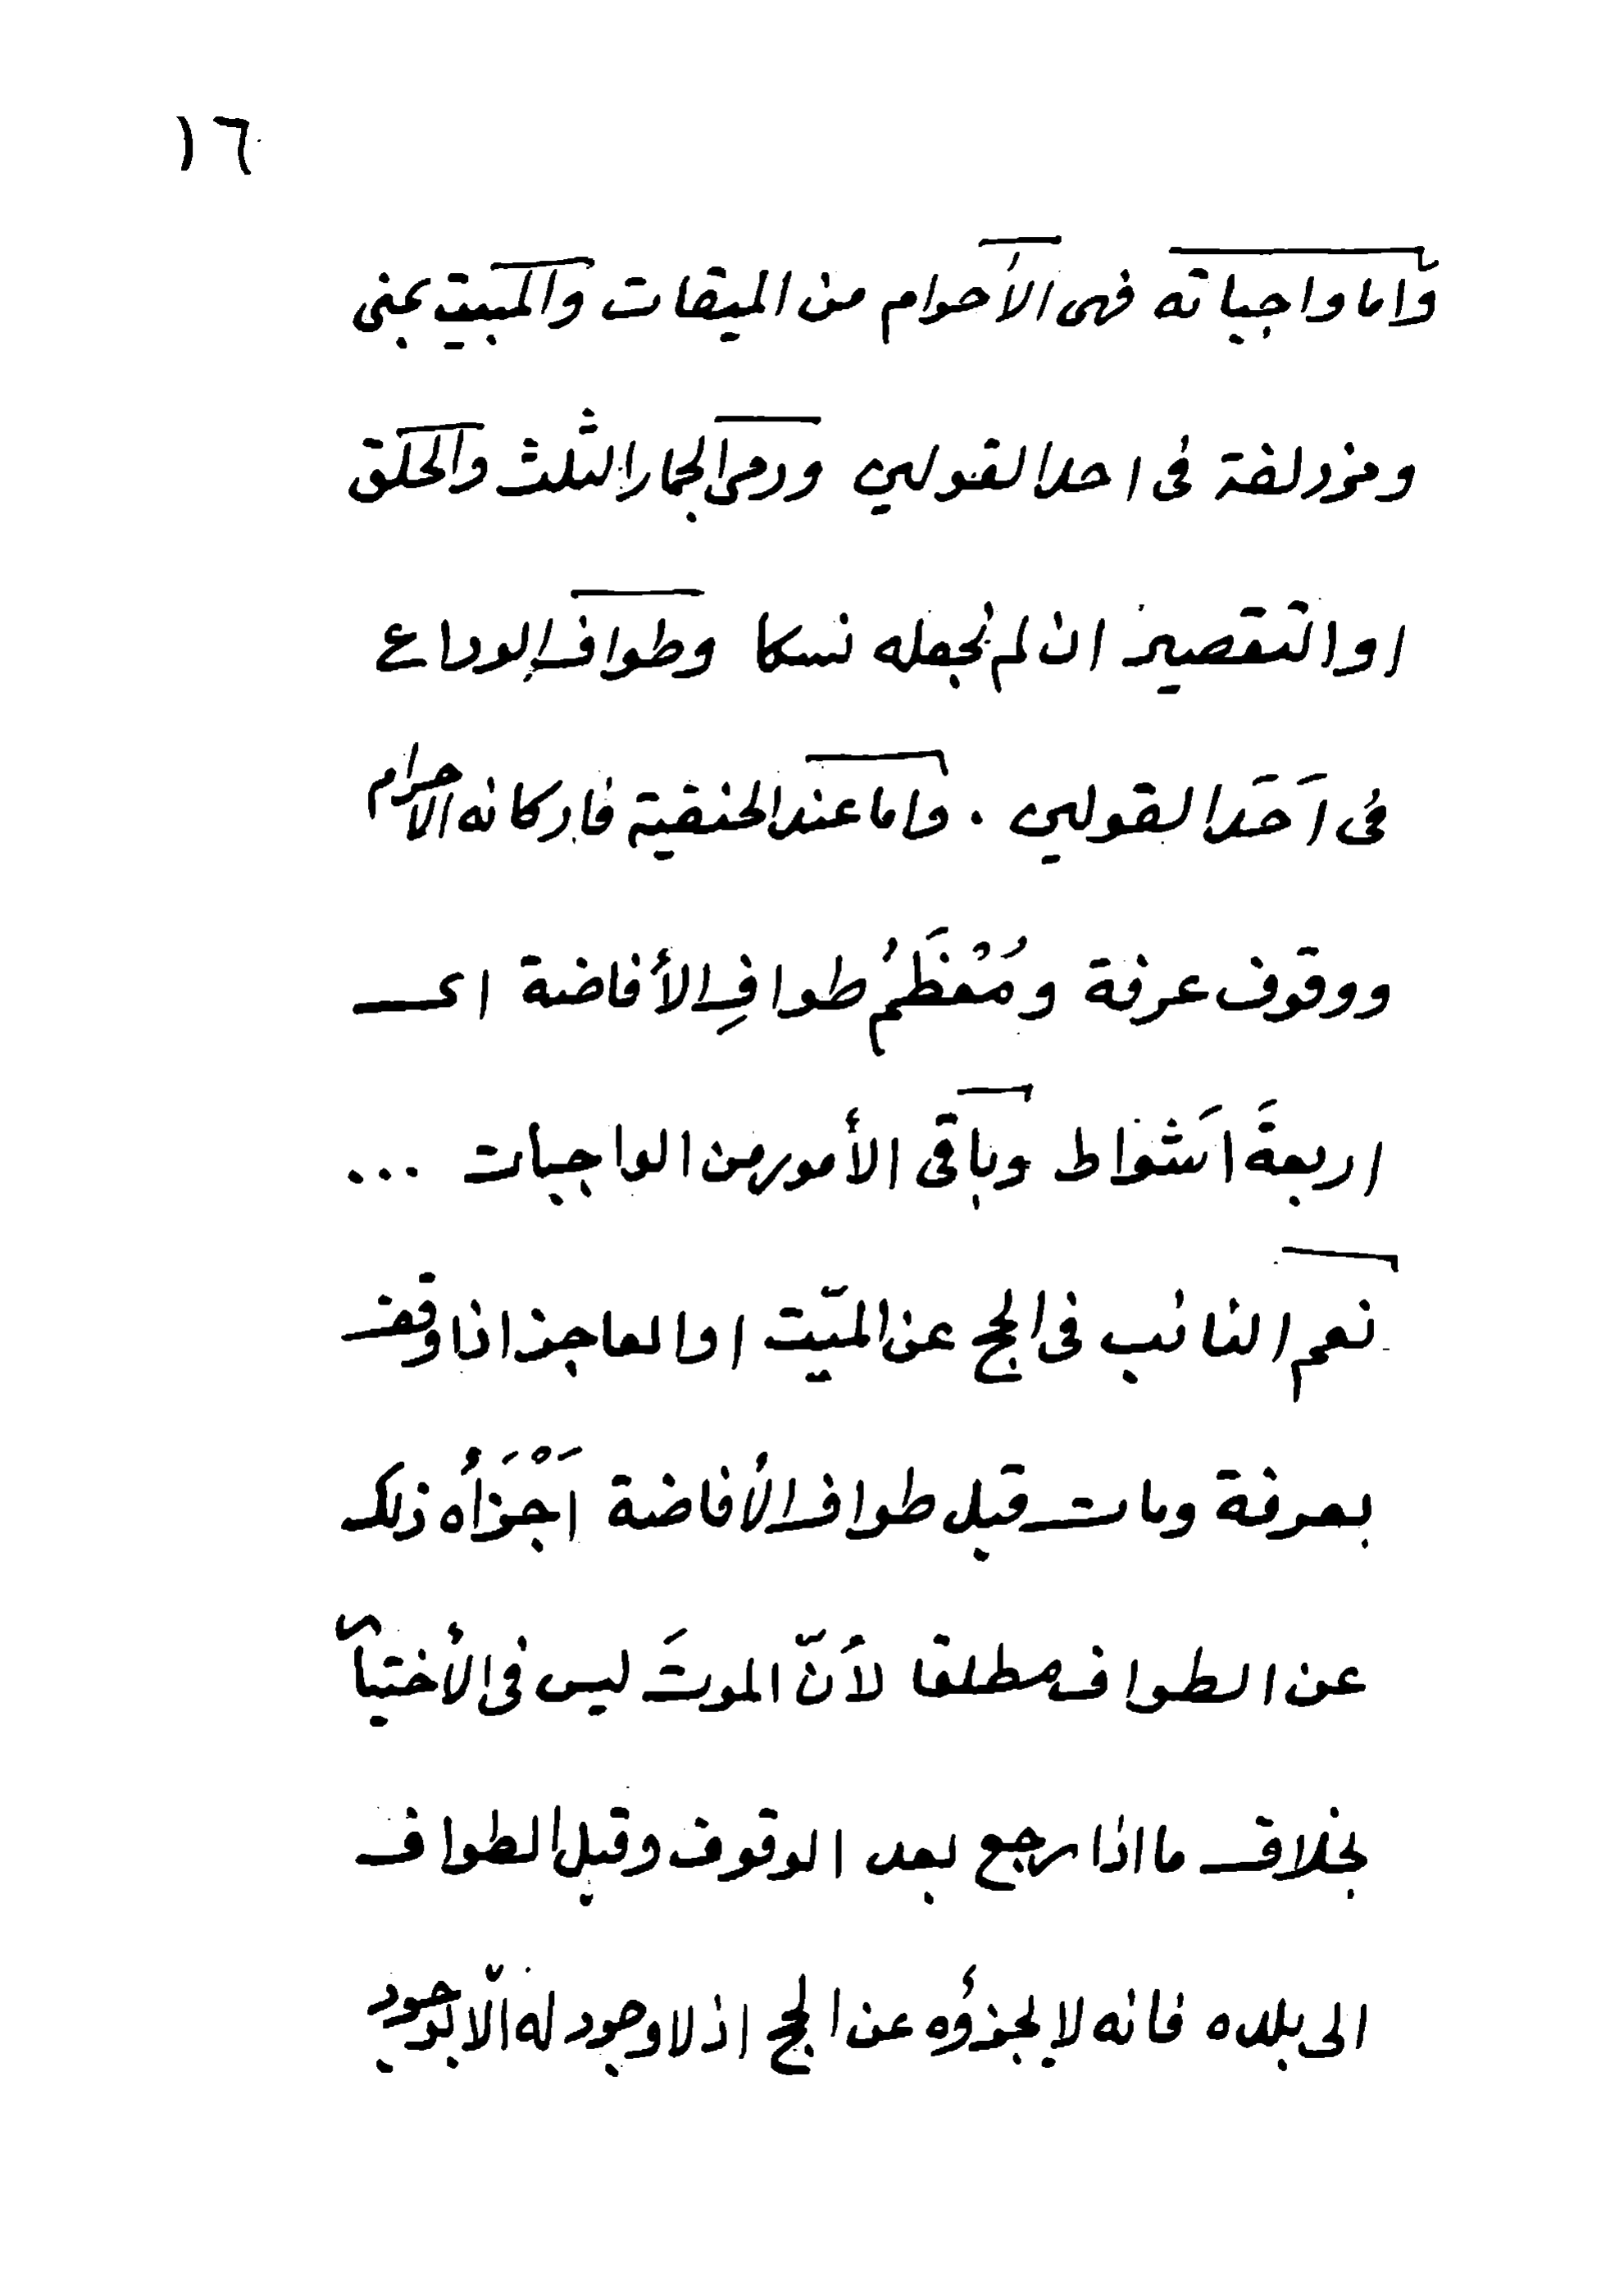 ١٦
واما واجباته فهى الأحرام من الميقات والمبيت بمنى
ومزدلفة فى احد القولين ورمى الجمار الثلث والحلق
او التقصير ان لم نجعله نسكا وطواف الوداع
فى اَحَد القولين . واما عند الحنفية فاركانه الاحرام
ووقوف عرفة ومُعْظَمُ طوافِ الأفاضة اى
اربعةَ اَشواط وباقى الأمور من الواجبات ...
نعم النائب فى الحج عن الميّت او العاجز اذا وقف
بعرفة ومات قبل طواف الأفاضة اَجْزَأه ذلك
عن الطواف مطلقا لأنّ الموتَ ليس فى الأختيار
بخلاف ما اذا رجع بعد الوقوف وقبل الطواف
الى بلده فانه لا يجزؤه عن الحج اذ لا وجود له الّا بوجود